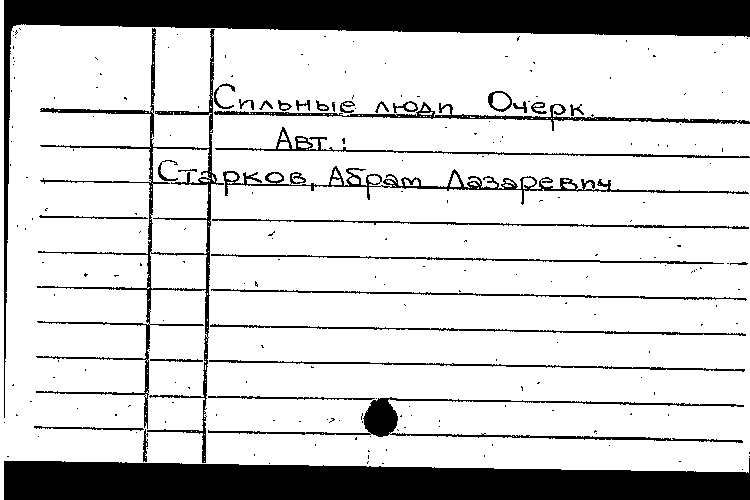 Сильные люди Очерк.
Авт.:
Старков, Абрам Лазаревич